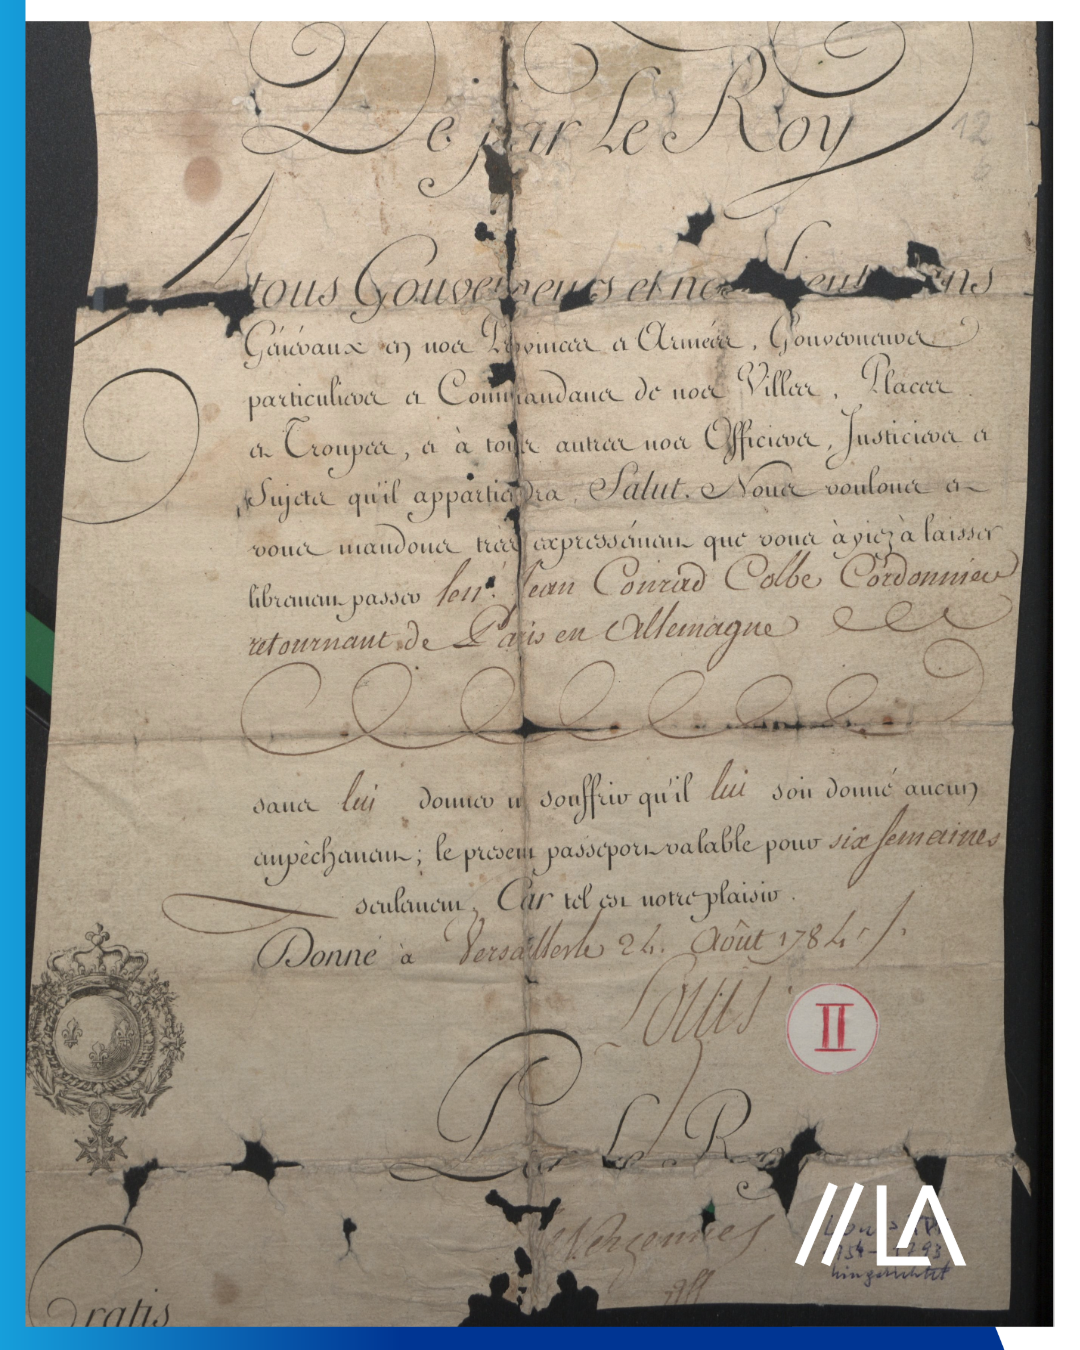 De par Le Roy
12
A tous Gouverneurs et nos Lieutenans
Généraux en nos Provinces et Armées, Gouverneurs
particuliers et Commandans de nos Villes, Places
et Troupes, et à tous autres nos Officiers, Justiciers et
Sujets qu'il appartiendra, Salut. Nous voulons et
vous mandons très expressément que vous ayiez à laisser
librement passer le né. Jean Conrad Colbe Cordonnier
retournant de Paris en Allemagne
sans lui donner ni souffrir qu'il lui soit donné aucun
empêchement; le present passeport valable pour six semaines
seulement, Car tel est notre plaisir.
Donné à Versailles le 24. Août 1784.
Louis
II
Par Le Roy
de Vergennes
Louis XVI
1754-1793
hingerichtet
Gratis
//LA